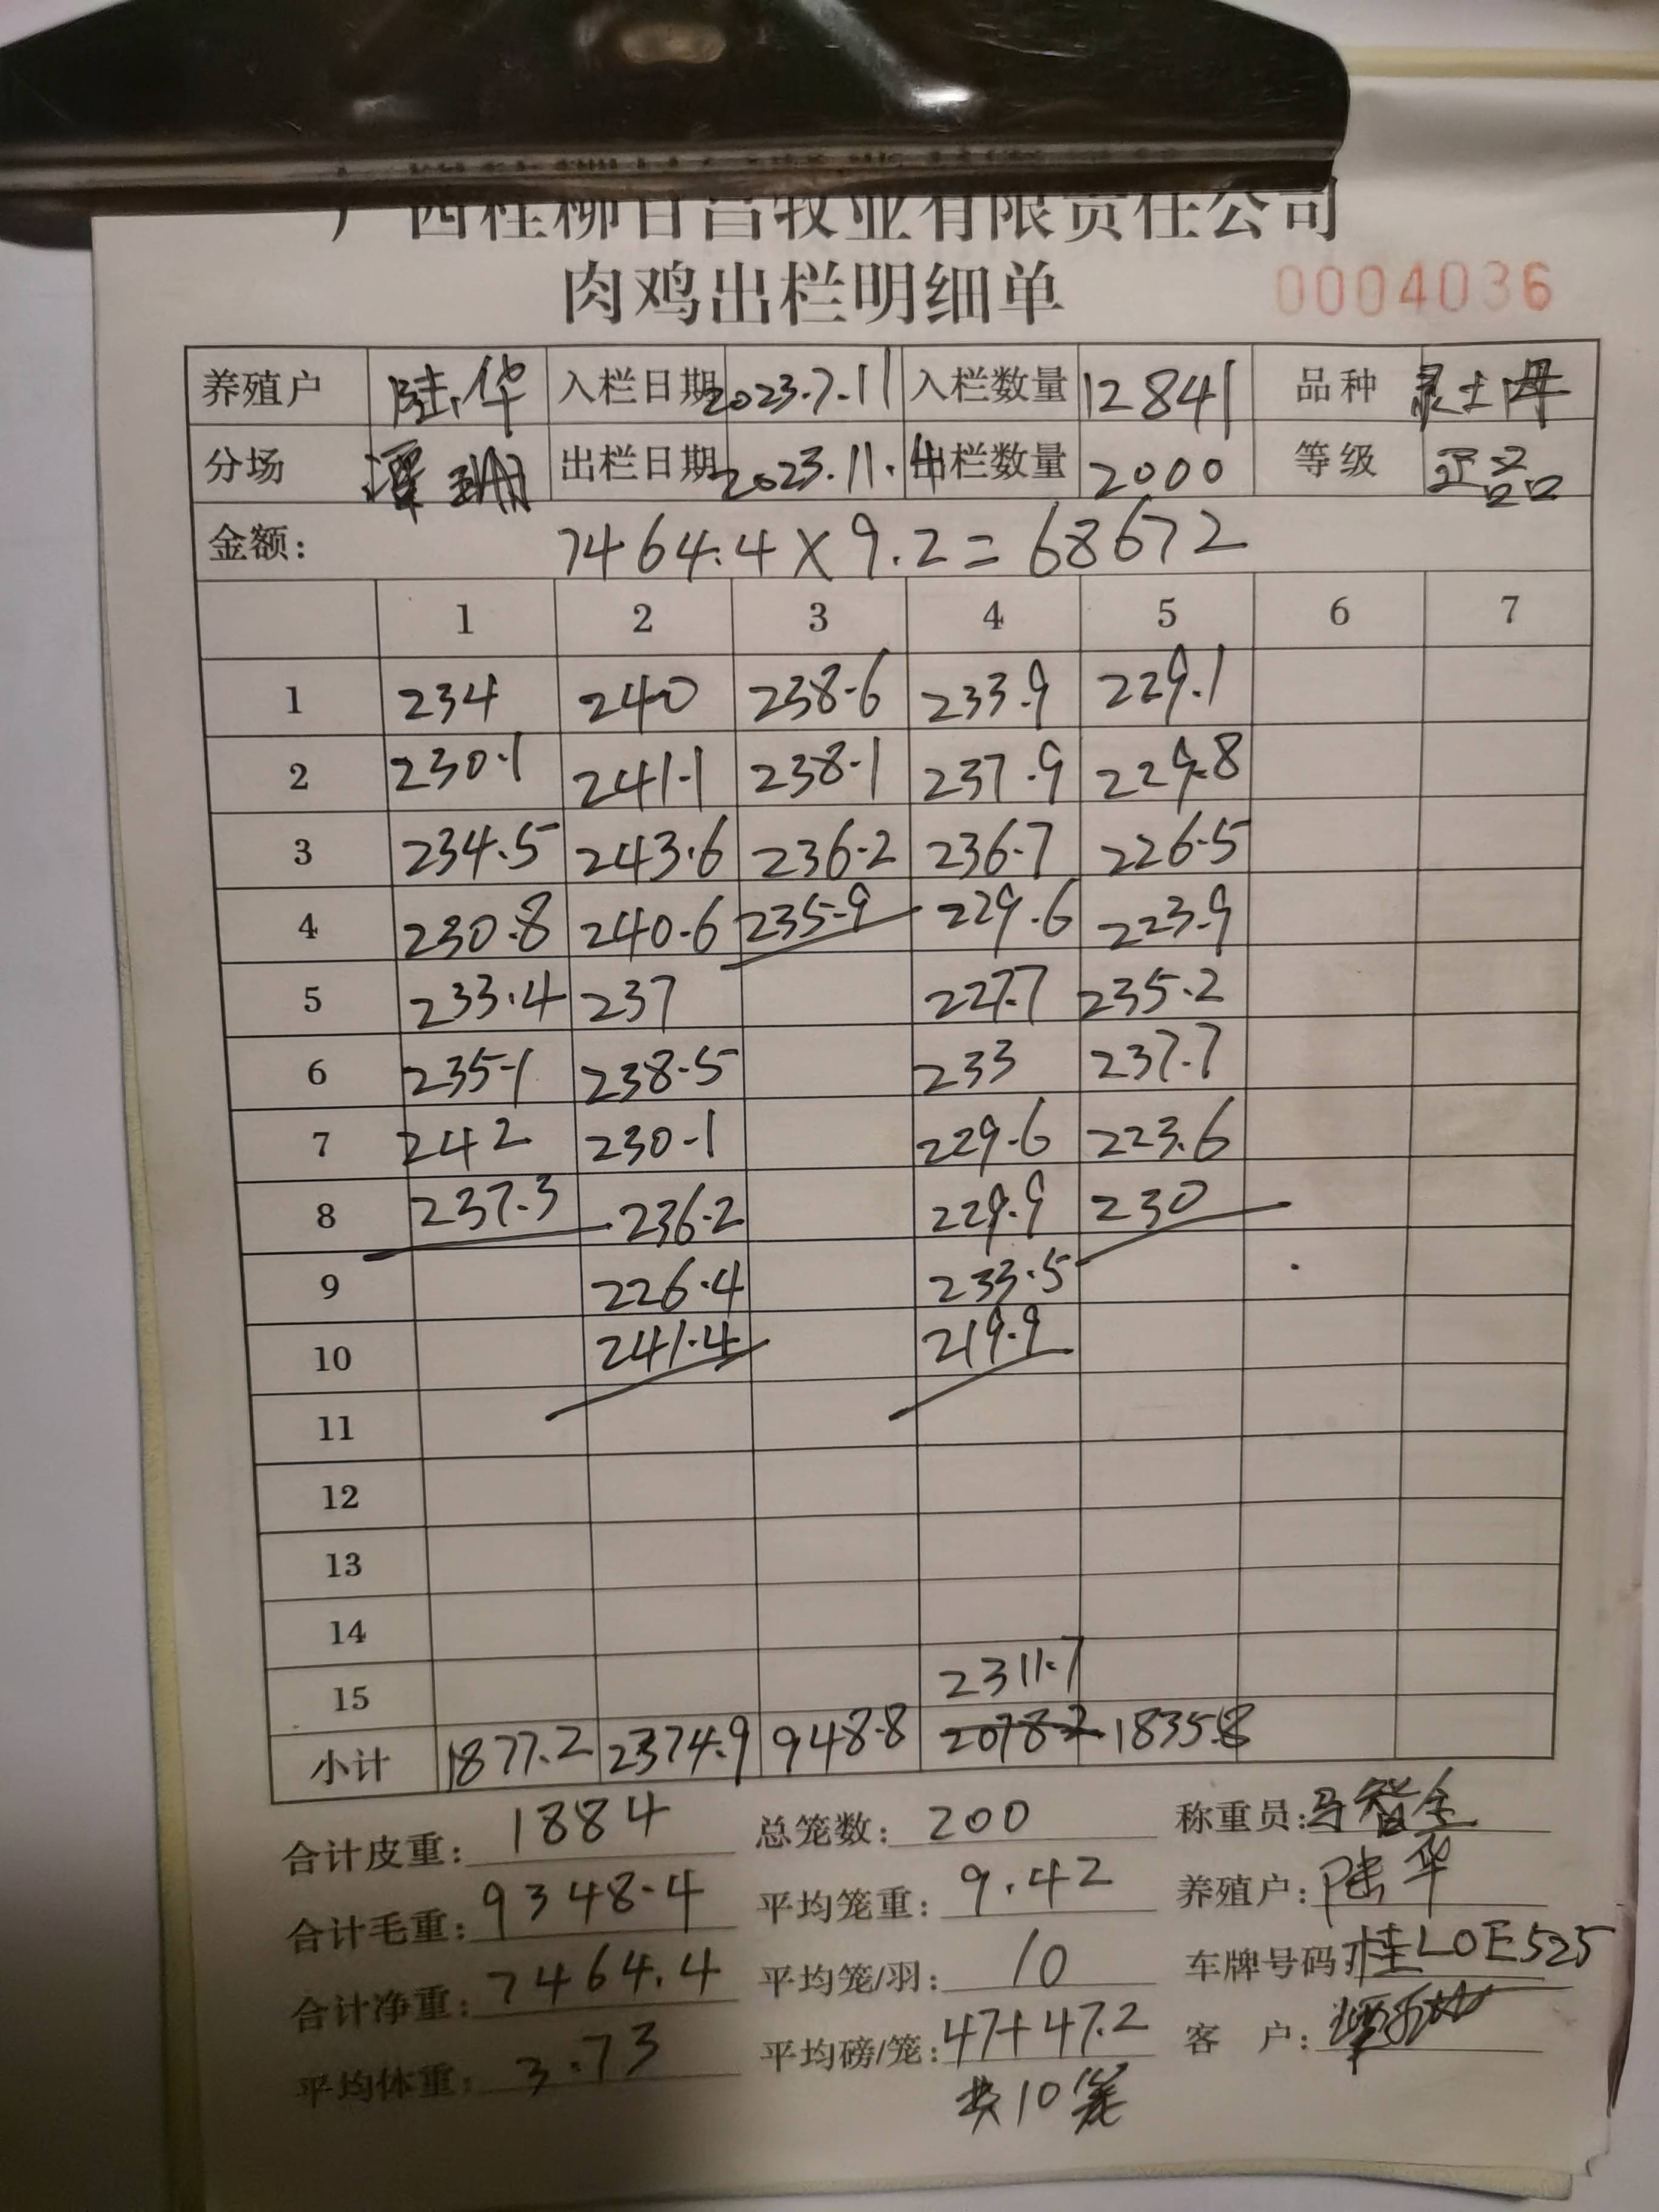 广西桂柳百昌牧业有限责任公司
肉鸡出栏明细单
0004036
养殖户 陆华 入栏日期 2023.7.11 入栏数量 12841 品种 灵土母
分场 出栏日期 2023.11.4 出栏数量 2000 等级 正品
金额: 7464.4×9.2=68672
1 2 3 4 5 6 7
1 234 240 238.6 233.9 229.1
2 230.1 241.1 238.1 237.9 229.8
3 234.5 243.6 236.2 236.7 226.5
4 230.8 240.6 235.9 229.6 223.9
5 233.4 237 227.7 235.2
6 235.1 238.5 233 237.7
7 242 230.1 229.6 223.6
8 237.3 236.2 229.9 230
9 226.4 233.5
10 241.4 219.9
11
12
13
14
15 2311.7
小计 1877.2 2374.9 948.8 2078.2 1835.8
合计皮重: 1884 总笼数: 200 称重员: 马智全
合计毛重: 9348.4 平均笼重: 9.42 养殖户: 陆华
合计净重: 7464.4 平均笼/羽: 10 车牌号码: 桂L0E525
平均体重: 3.73 平均磅/笼: 47+47.2 客 户:
共10笼